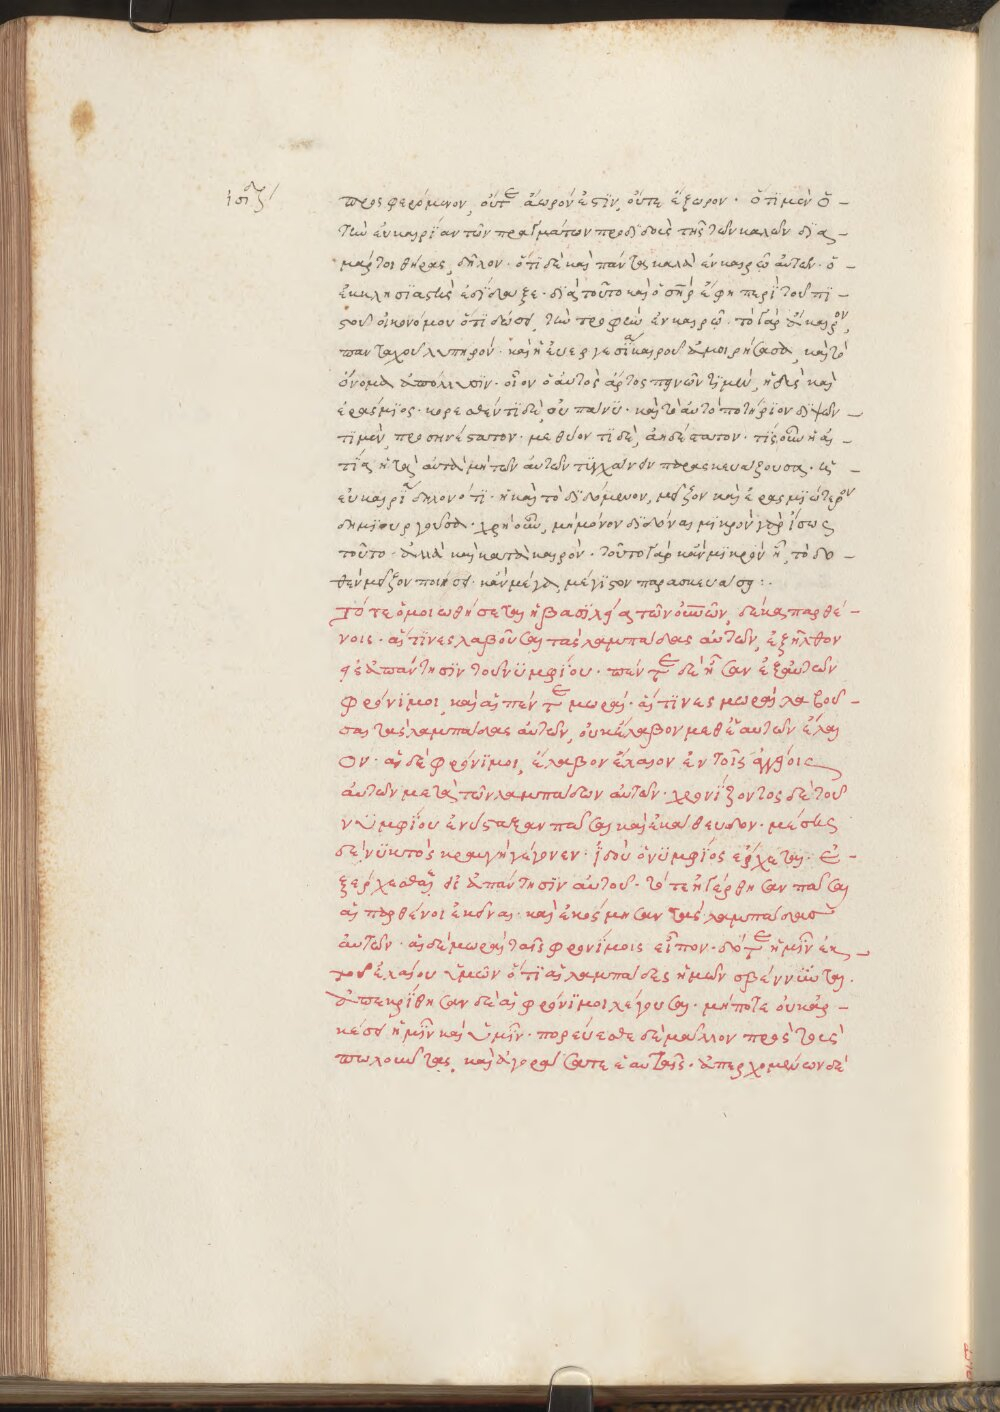 ἰσιδ
προσφερόμενον, οὔτε ἄωρόν ἐστιν, οὔτε ἔξωρον· ὅτι μὲν ὁ
τὴν εὐκαιρίαν τῶν πραγμάτων προδιδοὺς τῆς τῶν καλῶν δια
μάρτοι θήρας, δῆλον· ὅτι δὲ καὶ πάντας καλὰ ἐν καιρῶ αὐτῶν· ὁ
ἐκκλησιαστὴς ἐδίδαξε· διὰ τοῦτο καὶ ὁ σῆρ ἔφη περὶ τοῦ πι
στοῦ οἰκονόμου ὅτι δώσει, τὴν τροφὴν ἐν καιρῶ· τὸ γὰρ ἄκαιρον,
πανταχοῦ λυπηρόν· καὶ ἡ εὐεργεσία καιροῦ ἀμοιρήσασα, καὶ τὸ
ὄνομα ἀπόλλυσιν· οἷον ὁ αὐτὸς ἄρτος πεινῶντι μὲν, ἡδὺς καὶ
ἐράσμιος· κορεσθέντι δὲ, οὐ πάνυ· καὶ τὸ αὐτὸ ποτήριον διψῶν
τι μὲν, προσηνέστατον· μεθύοντι δὲ, ἀηδέστατον· τίς οὖν ἡ αἰ
τία, ἡ τὰς αὐτὰ μὴ τῶν αὐτῶν τυγχάνειν παρασκευάζουσα·
εὐκαιρία δηλονότι· ἡ καὶ τὸ διδόμενον, μεῖζον καὶ ἐρασμιώτερον
δημιουργοῦσα· χρὴ οὖν, μὴ μόνον διδόναι μικρὸν γὰρ ἴσως
τοῦτο· ἀλλὰ καὶ κατὰ καιρόν· τοῦτο γὰρ κἂν μικρὸν ἦ, τὸ δο
θὲν μεῖζον ποιήσει· κἂν μέγα, μέγιστον παρασκευάση:.
Τότε ὁμοιωθήσεται ἡ βασιλεία τῶν οὐνῶν, δέκα παρθέ
νοις· αἵτινες λαβοῦσαι τὰς λαμπάδας αὐτῶν, ἐξῆλθον
εἰς ἀπάντησιν τοῦ νυμφίου· πέντε δὲ ἦσαν ἐξ αὐτῶν
φρόνιμοι, καὶ αἱ πέντε μωραί· αἵτινες μωραὶ λαβοῦ
σαι τὰς λαμπάδας αὐτῶν, οὐκ ἔλαβον μεθ' ἑαυτῶν ἔλαι
ον· αἱ δὲ φρόνιμοι, ἔλαβον ἔλαιον ἐν τοῖς ἀγγείοις
αὐτῶν μετὰ τῶν λαμπάδων αὐτῶν· χρονίζοντος δὲ τοῦ
νυμφίου ἐνύσταξαν πᾶσαι καὶ ἐκάθευδον· μέσης
δὲ νυκτὸς κραυγὴ γέγονεν· ἰδοὺ ὁ νυμφίος ἔρχεται· ἐ
ξέρχεσθαι εἰς ἀπάντησιν αὐτοῦ· τότε ἠγέρθησαν πᾶσαι
αἱ παρθένοι ἐκεῖναι· καὶ ἐκόσμησαν τὰς λαμπάδας
αὐτῶν· αἱ δὲ μωραὶ ταῖς φρονίμοις εἶπον· δότε ἡμῖν ἐκ
τοῦ ἐλαίου ὑμῶν ὅτι αἱ λαμπάδες ἡμῶν σβέννυνται.
ἀπεκρίθησαν δὲ αἱ φρόνιμοι λέγουσαι· μήποτε οὐκ ἀρ
κέσει ἡμῖν καὶ ὑμῖν· πορεύεσθε δὲ μᾶλλον πρὸς τοὺς
πωλοῦντας, καὶ ἀγοράσατε ἑαυταῖς· ἀπερχομένων δὲ